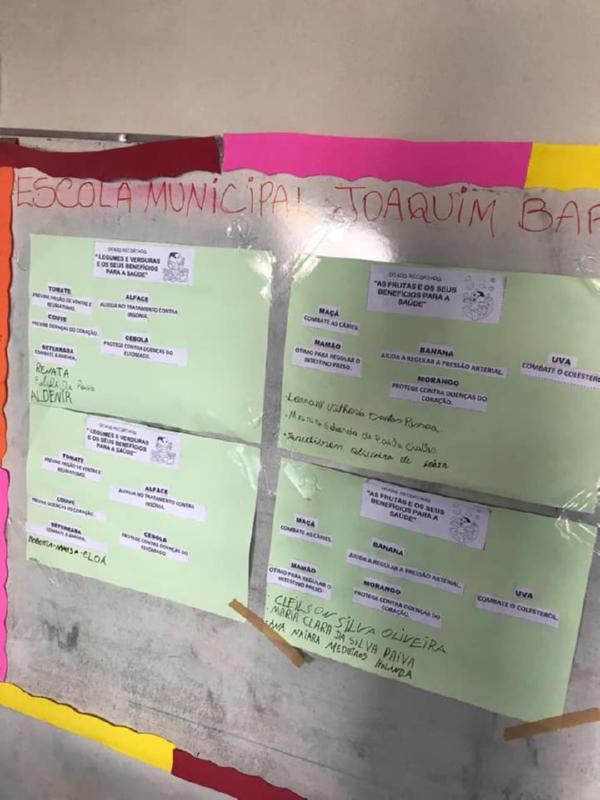 ESCOLA MUNICIPAL JOAQUIM BAR
DITADO RECORTADO
"LEGUMES E VERDURAS
E OS SEUS BENEFÍCIOS
PARA A SAÚDE"
TOMATE
PREVINE PRISÃO DE VENTRE E
REUMATISMO.
ALFACE
AUXILIA NO TRATAMENTO CONTRA
INSÔNIA.
COUVE
PREVINE DOENÇAS DO CORAÇÃO.
CEBOLA
PROTEGE CONTRA DOENÇAS DO
ESTÔMAGO.
BETERRABA
COMBATE A ANEMIA.
RENATA
Felipe da Paiva
ALDENIR
DITADO RECORTADO
"AS FRUTAS E OS SEUS
BENEFÍCIOS PARA A
SAÚDE"
MAÇÃ
COMBATE AS CÁRIES.
MAMÃO
OTIMO PARA REGULAR O
INTESTINO PRESO.
BANANA
AJUDA A REGULAR A PRESSÃO ARTERIAL.
UVA
COMBATE O COLESTEROL
MORANGO
PROTEGE CONTRA DOENÇAS DO
CORAÇÃO.
Eduarda de
oliveira de
DITADO RECORTADO
"LEGUMES E VERDURAS
E OS SEUS BENEFÍCIOS
PARA A SAÚDE"
TOMATE
PREVINE PRISÃO DE VENTRE E
REUMATISMO.
ALFACE
AUXILIA NO TRATAMENTO CONTRA
INSÔNIA.
COUVE
PREVINE DOENÇAS DO CORAÇÃO.
BETERRABA
COMBATE A ANEMIA.
CEBOLA
PROTEGE CONTRA DOENÇAS DO
ESTÔMAGO.
ELOÁ
DITADO RECORTADO
"AS FRUTAS E OS SEUS
BENEFÍCIOS PARA A
SAÚDE"
MAÇÃ
COMBATE AS CÁRIES.
BANANA
AJUDA A REGULAR A PRESSÃO ARTERIAL.
MAMÃO
OTIMO PARA REGULAR O
INTESTINO PRESO.
MORANGO
PROTEGE CONTRA DOENÇAS DO
CORAÇÃO.
UVA
COMBATE O COLESTEROL.
- CLEILSON SILVA OLIVEIRA
- MARIA CLARA DA SILVA PAIVA
- ANA NAIARA MEDEIROS HOLANDA